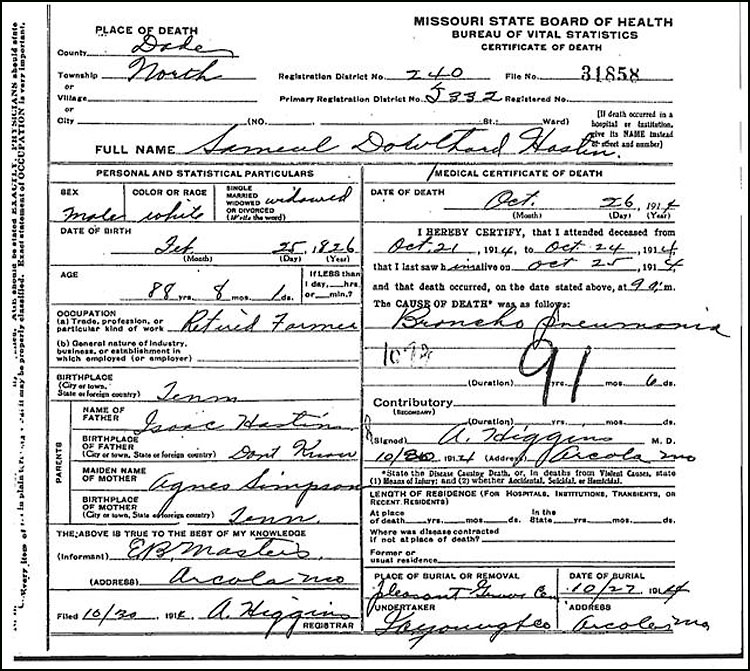 MISSOURI STATE BOARD OF HEALTH
BUREAU OF VITAL STATISTICS
CERTIFICATE OF DEATH
PLACE OF DEATH
County Dade
Township North
or
Village
or
City (NO. St.: Ward)
Registration District No. 240 File No. 31858
Primary Registration District No. 5332 Registered No.
[If death occurred in a
hospital or institution,
give its NAME instead
of street and number]
FULL NAME Samuel Hastin
PERSONAL AND STATISTICAL PARTICULARS
SEX Male
COLOR OR RACE white
SINGLE
MARRIED
WIDOWED
OR DIVORCED
(Write the word) widowed
DATE OF BIRTH
Feb 25, 1826
(Month) (Day) (Year)
AGE
88 yrs. 8 mos. 1 ds.
If LESS than
1 day,....hrs.
or....min.?
OCCUPATION
(a) Trade, profession, or
particular kind of work Retired Farmer
(b) General nature of industry,
business, or establishment in
which employed (or employer)
BIRTHPLACE
(City or town,
State or foreign country) Tenn
PARENTS
NAME OF
FATHER Isaac Hastin
BIRTHPLACE
OF FATHER
(City or town, State or foreign country) Dont Know
MAIDEN NAME
OF MOTHER Agnes Simpson
BIRTHPLACE
OF MOTHER
(City or town, State or foreign country) Tenn.
THE ABOVE IS TRUE TO THE BEST OF MY KNOWLEDGE
(Informant) E.B. Masters
(ADDRESS) Arcola Mo
Filed 10/30 1914 A. Higgins
REGISTRAR
MEDICAL CERTIFICATE OF DEATH
DATE OF DEATH Oct. 26, 1914
(Month) (Day) (Year)
I HEREBY CERTIFY, that I attended deceased from
Oct. 21, 1914, to Oct 24, 1914,
that I last saw him alive on Oct 25, 1914,
and that death occurred, on the date stated above, at 9 m.
The CAUSE OF DEATH* was as follows:
Broncho Pneumonia
91
(Duration) yrs. mos. 6 ds.
Contributory
(SECONDARY)
(Duration) yrs. mos. ds.
(Signed) A. Higgins M. D.
10/30 1914 (Address) Arcola Mo
*State the Disease Causing Death, or, in deaths from Violent Causes, state
(1) Means of Injury; and (2) whether Accidental, Suicidal, or Homicidal.
LENGTH OF RESIDENCE (For Hospitals, Institutions, Transients, or
Recent Residents)
At place
of death....yrs.....mos.....ds. In the
State....yrs.....mos.....ds.
Where was disease contracted
if not at place of death?
Former or
usual residence
PLACE OF BURIAL OR REMOVAL
Pleasant Grove Cem
DATE OF BURIAL
10/27 1914
UNDERTAKER
ADDRESS
Arcola Mo